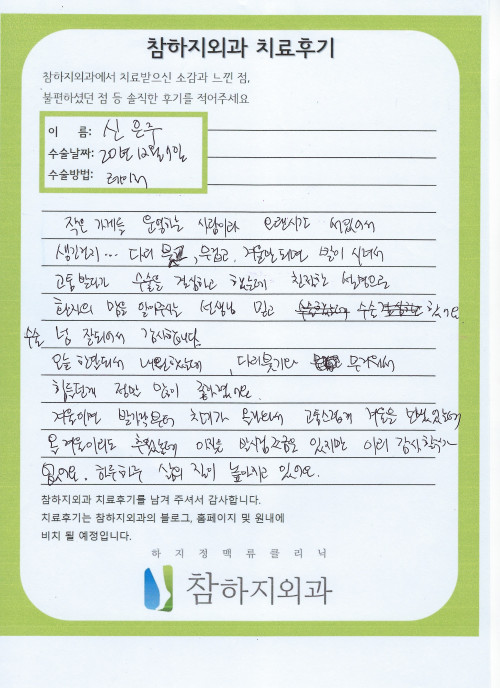 참하지외과 치료후기
참하지외과에서 치료받으신 소감과 느낀 점,
불편하셨던 점 등 솔직한 후기를 적어주세요
이 름: 신은주
수술날짜: 2015년 12월 9일
수술방법: 레이저
작은 가게를 운영하는 사람이라 오랜시간 서있어서
생긴건지... 다리 , 무겁고, 겨울만되면 발이 시려서
고통받다가 수술을 결심하고 했는데 친절한 설명으로
환자의 맘을 알아주시는 선생님 믿고 수술 했어요
수술 넘 잘되어서 감사합니다.
오늘 한달되서 내원했는데, 다리붓기나 무거워서
힘들던게 정말 많이 좋아졌어요.
겨울이면 발가락부터 차다가 고통스럽게 겨울을 보냈었는데
올겨울이라도 추웠는데 이 조금은 있지만 이리 감사할수가
없어요. 하루하루 삶의 질이 높아지고 있어요.
참하지외과 치료후기를 남겨 주셔서 감사합니다.
치료후기는 참하지외과의 블로그, 홈페이지 및 원내에
비치 될 예정입니다.
하지정맥류클리닉
참하지외과